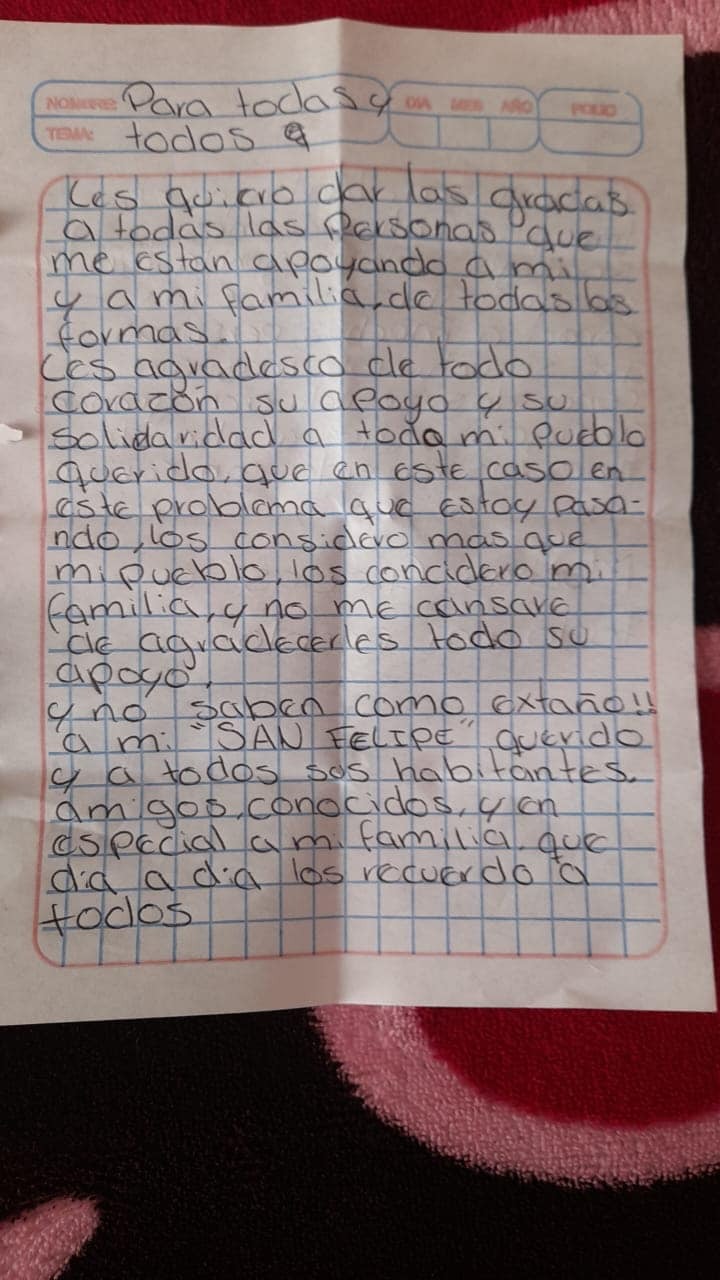 NOMBRE: Para todas y
DIA MES AÑO
FOLIO
TEMA: todos
Les quiero dar las gracias
a todas las Personas que
me estan apoyando a mi
y a mi familia, de todas las
formas.
Les agradesco de todo
corazón su apoyo y su
solidaridad a todo mi Pueblo
querido, que en este caso en
este problema que estoy pasa-
ndo, los considero mas que
mi pueblo, los concidero mi
familia, y no me cansare
de agradecerles todo su
apoyo,
y no saben como extaño!!
a mi "SAN FELIPE" querido
y a todos sus habitantes,
amigos, conocidos, y en
especial a mi familia, que
dia a dia los recuerdo a
todos